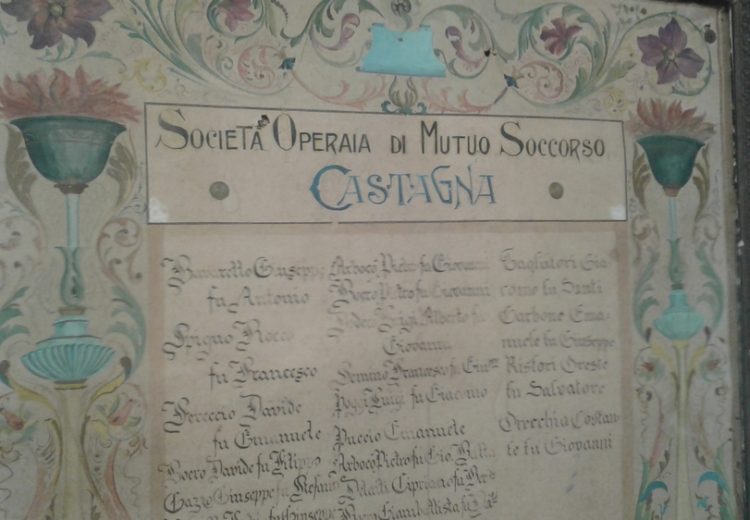 SOCIETÀ OPERAIA DI MUTUO SOCCORSO
CASTAGNA
Giuseppe
fu Antonio
Rocco
fu Francesco
Davide
fu Emanuele
Boero Davide fu Filippo
Gazzo Giuseppe fu Stefano
Arboco Pietro fu Giovanni
Boero Pietro fu Giovanni
Luigi Alberto fu
Giovanni
Francesco fu
Poggi Luigi fu Giacomo
Puccio Emanuele
Arboco Pietro fu Gio. Batta
Cipriano fu
Tagliatori Gia-
como fu Santi
Carbone Ema-
nuele fu Giuseppe
Ristori Oreste
fu Salvatore
Orecchia Costan-
te fu Giovanni